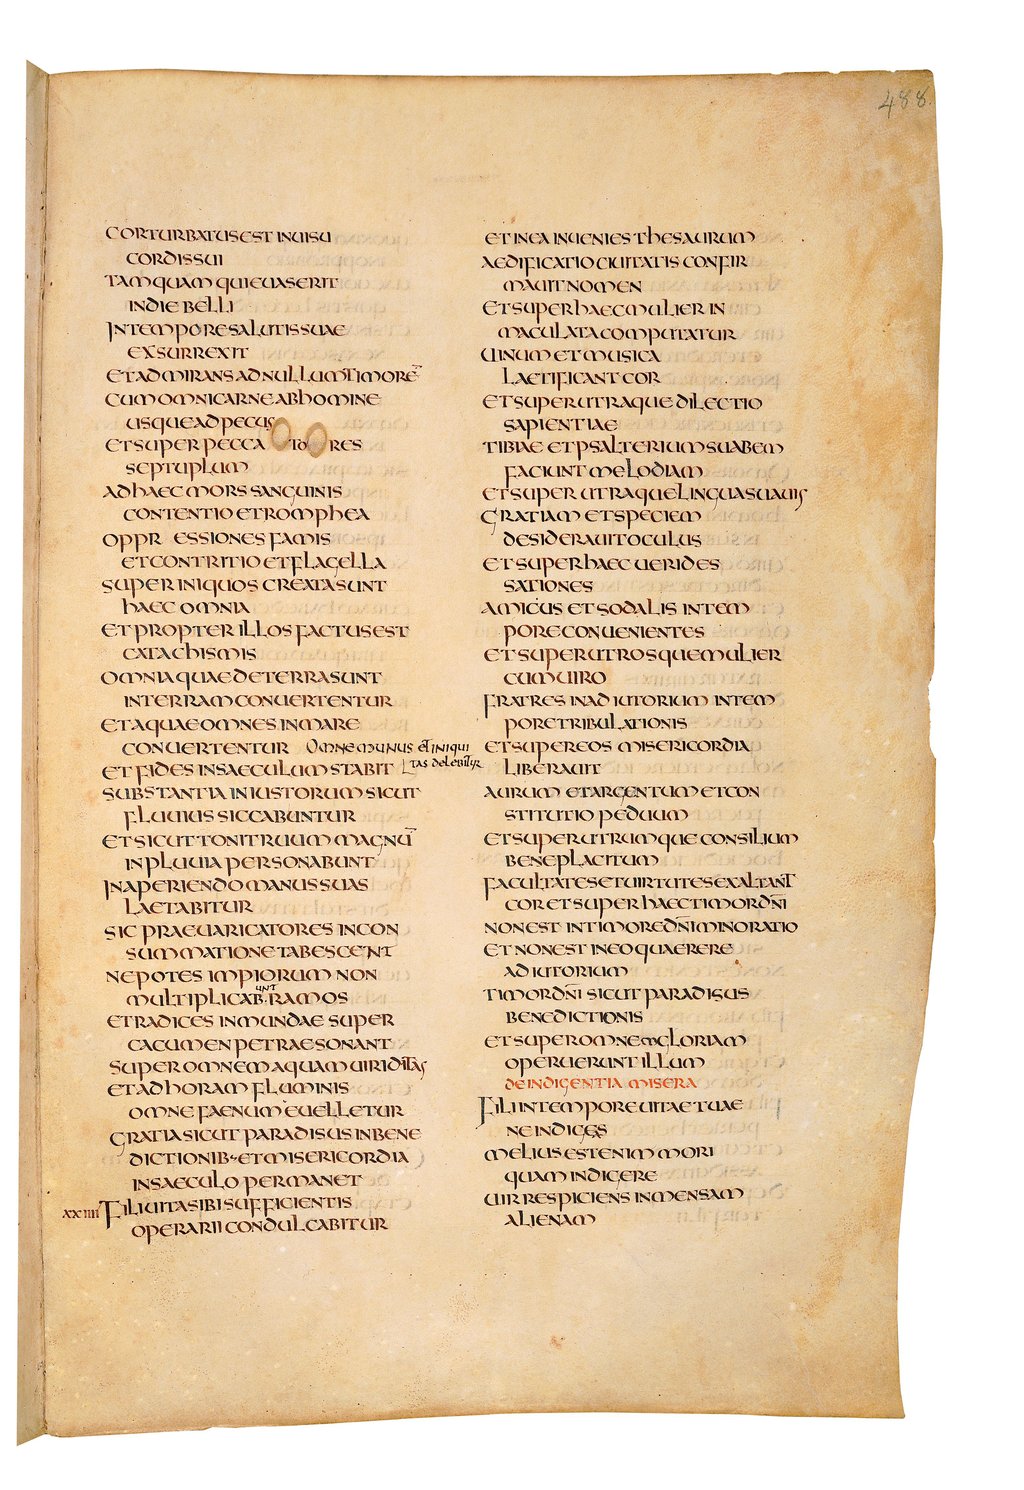 488.
CORTURBATUSEST INUISU
CORDISSUI
TAMQUAM QUIEUASERIT
INDIE BELLI
INTEMPORESALUTISSUAE
EXSURREXIT
ETADMIRANSADNULLUMTIMORE̅
CUMOMNICARNEABHOMINE
USQUEADPECUS
ETSUPERPECCA TO RES
SEPTUPLUM
ADHAECMORSSANGUINIS
CONTENTIOETROMPHEA
OPPR ESSIONES FAMIS
ETCONTRITIOETFLAGELLA
SUPERINIQUOSCREATASUNT
HAECOMNIA
ETPROPTERILLOSFACTUSEST
CATACHISMIS
OMNIAQUAEDETERRASUNT
INTERRAMCONUERTENTUR
ETAQUAEOMNESINMARE
CONUERTENTUR Omne munus et iniqui
ETFIDESINSAECULUMSTABIT tas delebitur
SUBSTANTIAINIUSTORUMSICUT
FLUUIUSSICCABUNTUR
ETSICUTTONITRUUMMAGNU̅
INPLUUIAPERSONABUNT
INAPERIENDOMANUSSUAS
LAETABITUR
SICPRAEUARICATORES INCON
SUMMATIONETABESCENT
NEPOTES IMPIORUM NON
unt
MULTIPLICAB·RAMOS
ETRADICES INMUNDAE SUPER
CACUMENPETRAESONANT
SUPEROMNEMAQUAMUIRIDITAS
ETADHORAMFLUMINIS
OMNEFAENUMEUELLETUR
GRATIASICUTPARADISUSINBENE
DICTIONIB·ETMISERICORDIA
INSAECULOPERMANET
XXIIII FILIUITASIBISUFFICIENTIS
OPERARIICONDULCABITUR
ETINEAINUENIESTHESAURUM
AEDIFICATIOCIUITATIS CONFIR
MAUITNOMEN
ETSUPERHAECMULIER IN
MACULATACOMPUTATUR
UINUMETMUSICA
LAETIFICANTCOR
ETSUPERUTRAQUEDILECTIO
SAPIENTIAE
TIBIAE ETPSALTERIUMSUABEM
FACIUNTMELODIAM
ETSUPERUTRAQUELINGUASUAUIS
GRATIAM ETSPECIEM
DESIDERAUITOCULUS
ETSUPERHAEC UERIDES
SATIONES
AMICUS ETSODALIS INTEM
PORECONUENIENTES
ETSUPERUTROSQUEMULIER
CUMUIRO
FRATRES INADIUTORIUM INTEM
PORETRIBULATIONIS
ETSUPEREOS MISERICORDIA
LIBERAUIT
AURUM ETARGENTUMETCON
STITUTIO PEDUUM
ETSUPERUTRUMQUE CONSILIUM
BENEPLACITUM
FACULTATESETUIRTUTESEXALTANT
CORETSUPERHAECTIMORDN̅I
NONEST INTIMOREDN̅IMINORATIO
ETNONEST INEOQUAERERE
ADIUTORIUM
TIMORDN̅I SICUTPARADISUS
BENEDICTIONIS
ETSUPEROMNEMGLORIAM
OPERUERUNTILLUM
DEINDIGENTIA MISERA
FILIINTEMPOREUITAETUAE
NEINDIGES
MELIUSESTENIMMORI
QUAMINDIGERE
UIRRESPICIENS INMENSAM
ALIENAM